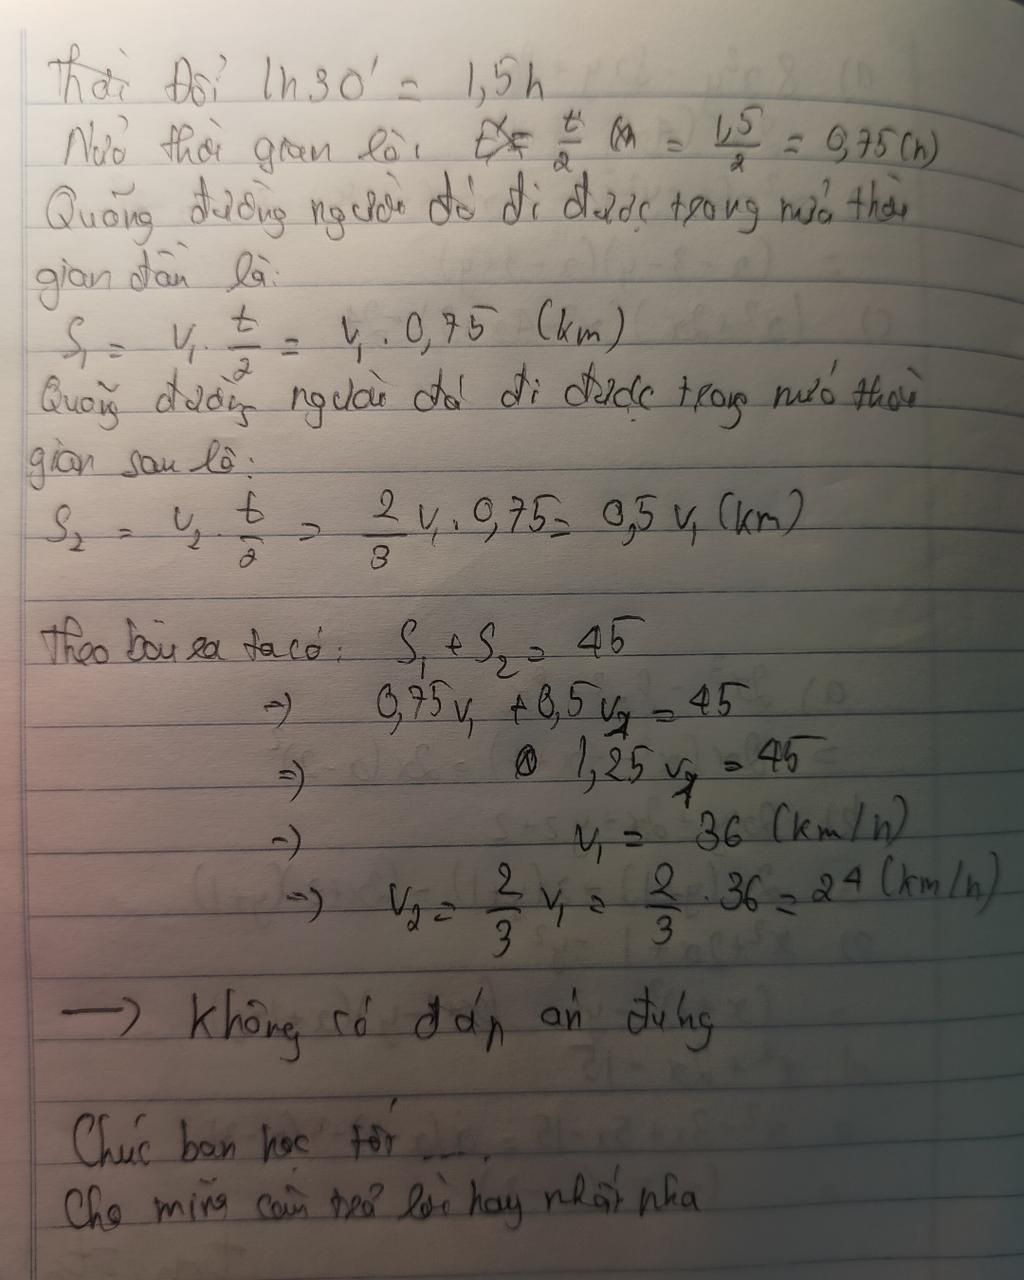 Thời Đổi 1h30' = 1,5h
Nửa thời gian là: t/2 = 1,5/2 = 0,75(h)
Quãng đường người đó đi được trong nửa thời
gian đầu là:
S₁ = v₁ . t/2 = v₁ . 0,75 (km)
Quãng đường người đó đi được trong nửa thời
gian sau là:
S₂ = v₂ . t/2 = 2/3 v₁ . 0,75 = 0,5 v₁ (km)
Theo bài ra ta có: S₁ + S₂ = 45
=> 0,75v₁ + 0,5v₁ = 45
=> 1,25 v₁ = 45
=> v₁ = 36 (km/h)
=> v₂ = 2/3 v₁ = 2/3 . 36 = 24 (km/h)
—> Không có đáp án đúng
Chúc bạn học tốt ....
Cho mình câu trả lời hay nhất nha